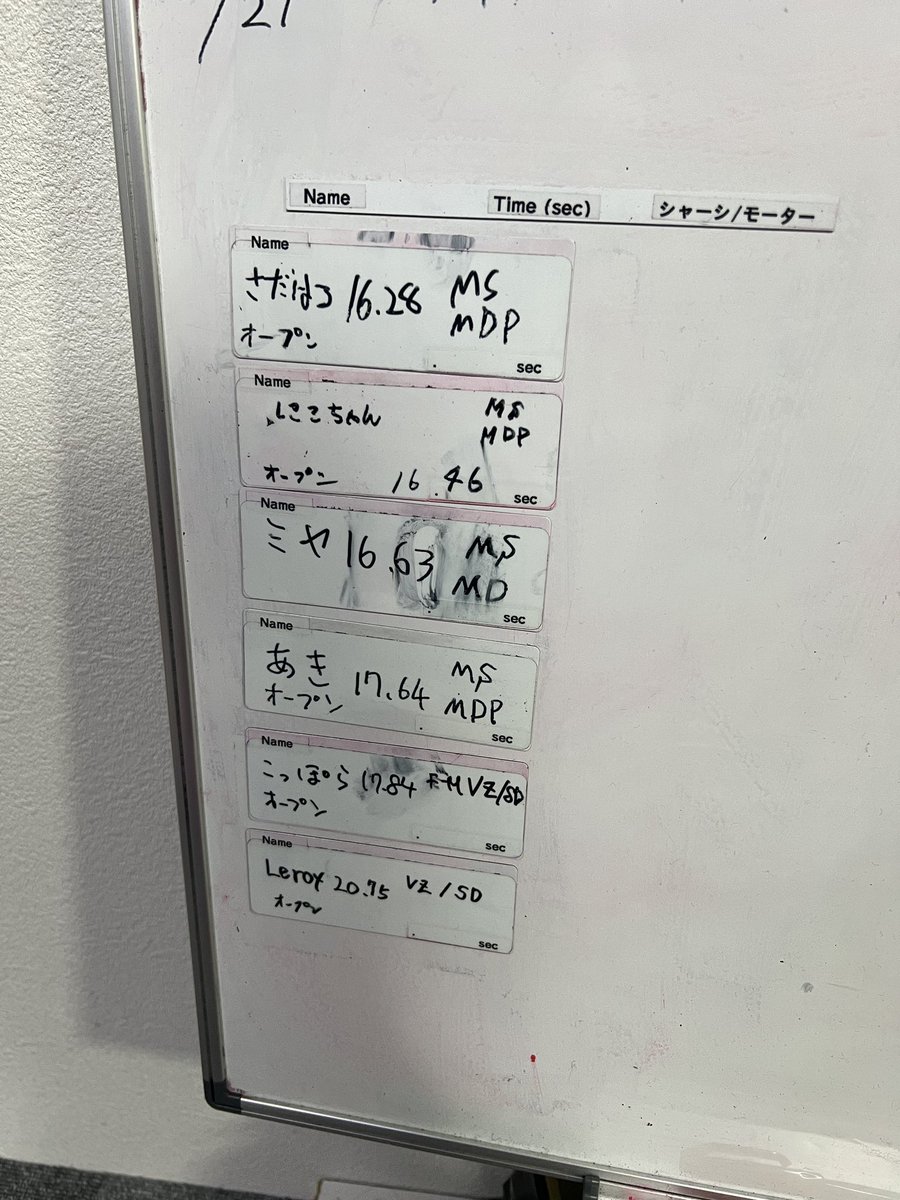 /21
Name Time (sec) シャーシ/モーター
Name
さだはる 16.28 MS
MDP
オープン
sec
Name
にこちゃん MS
MDP
オープン 16.46
sec
Name
ミヤ 16.63 MS
MD
sec
Name
あき 17.64 MS
オープン MDP
sec
Name
こっぽら 17.84 VZ/SD
オープン
sec
Name
Leroy 20.75 VZ/SD
オープン
sec